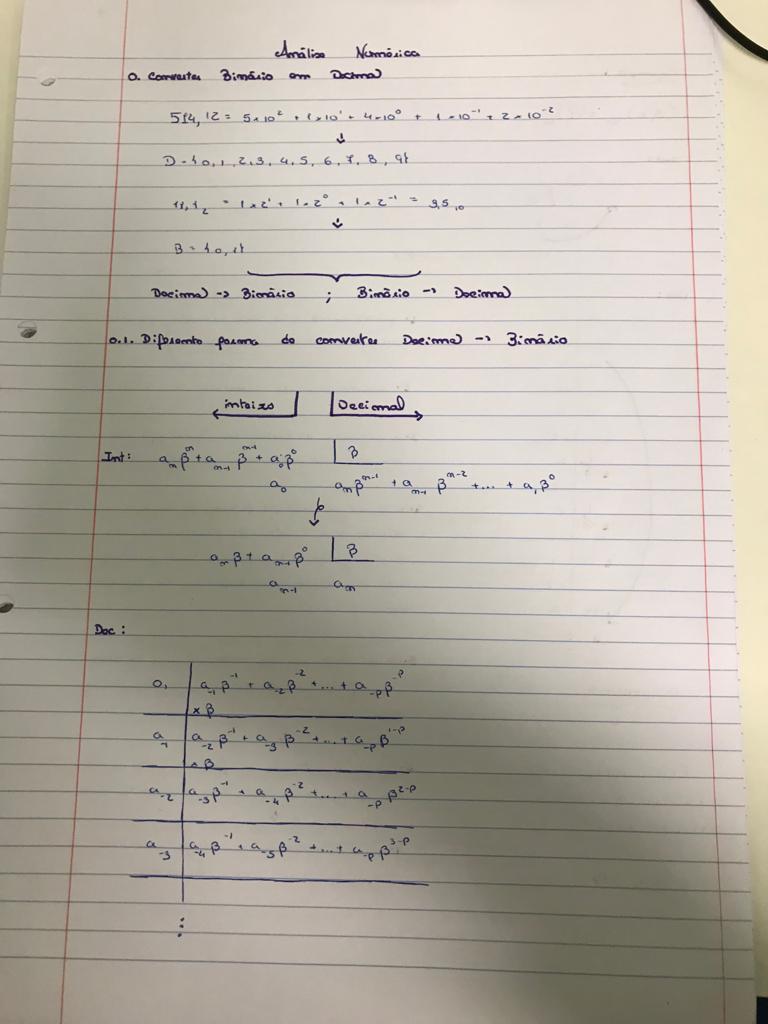 Análise Numérica
0. Converter Binário em Decimal
514,12 = 5×10² + 1×10¹ + 4×10⁰ + 1×10⁻¹ + 2×10⁻²
↓
D = {0, 1, 2, 3, 4, 5, 6, 7, 8, 9}
11,1₂ = 1×2¹ + 1×2⁰ + 1×2⁻¹ = 3,5₁₀
↓
B = {0, 1}
Decimal → Binário ; Binário → Decimal
0.1. Diferente forma de converter Decimal → Binário
inteiro | Decimal
Int: aₙβⁿ + aₙ₋₁βⁿ⁻¹ + a₀β⁰ | β
a₀ aₙβⁿ⁻¹ + aₙ₋₁βⁿ⁻² + ... + a₁β⁰
↓
aₙβ + aₙ₋₁β⁰ | β
aₙ₋₁ aₙ
Dec:
0, | a₋₁β⁻¹ + a₋₂β⁻² + ... + a₋ₚβ⁻ᵖ
×β
a₋₁ | a₋₂β⁻¹ + a₋₃β⁻² + ... + a₋ₚβ¹⁻ᵖ
×β
a₋₂ | a₋₃β⁻¹ + a₋₄β⁻² + ... + a₋ₚβ²⁻ᵖ
a₋₃ | a₋₄β⁻¹ + a₋₅β⁻² + ... + a₋ₚβ³⁻ᵖ
⋮